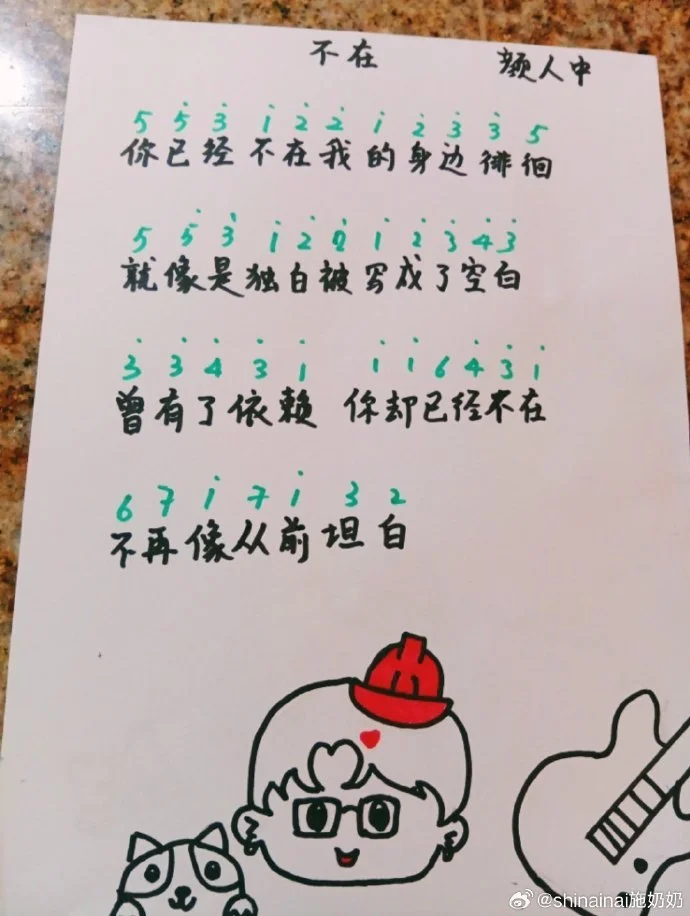 不在 颜人中
5 5̇ 3̇ 1̇ 2̇ 2̇ 1̇ 2̇ 3̇ 3̇ 5̇
你已经不在我的身边徘徊
5 5̇ 3̇ 1̇ 2̇ 2̇ 1̇ 2̇ 3̇ 4̇ 3̇
就像是独白被写成了空白
3̇ 3̇ 4̇ 3̇ 1̇ 1̇ 1̇ 6 4̇ 3̇ 1̇
曾有了依赖 你却已经不在
6 7 1̇ 7 1̇ 3̇ 2̇
不再像从前坦白
@shinainai施奶奶